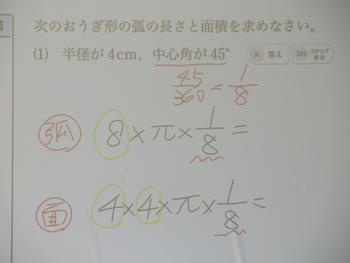 次のおうぎ形の弧の長さと面積を求めなさい。
(1) 半径が4cm, 中心角が45°
A 答え
45/360 = 1/8
弧 8×π×1/8=
面 4×4×π×1/8=